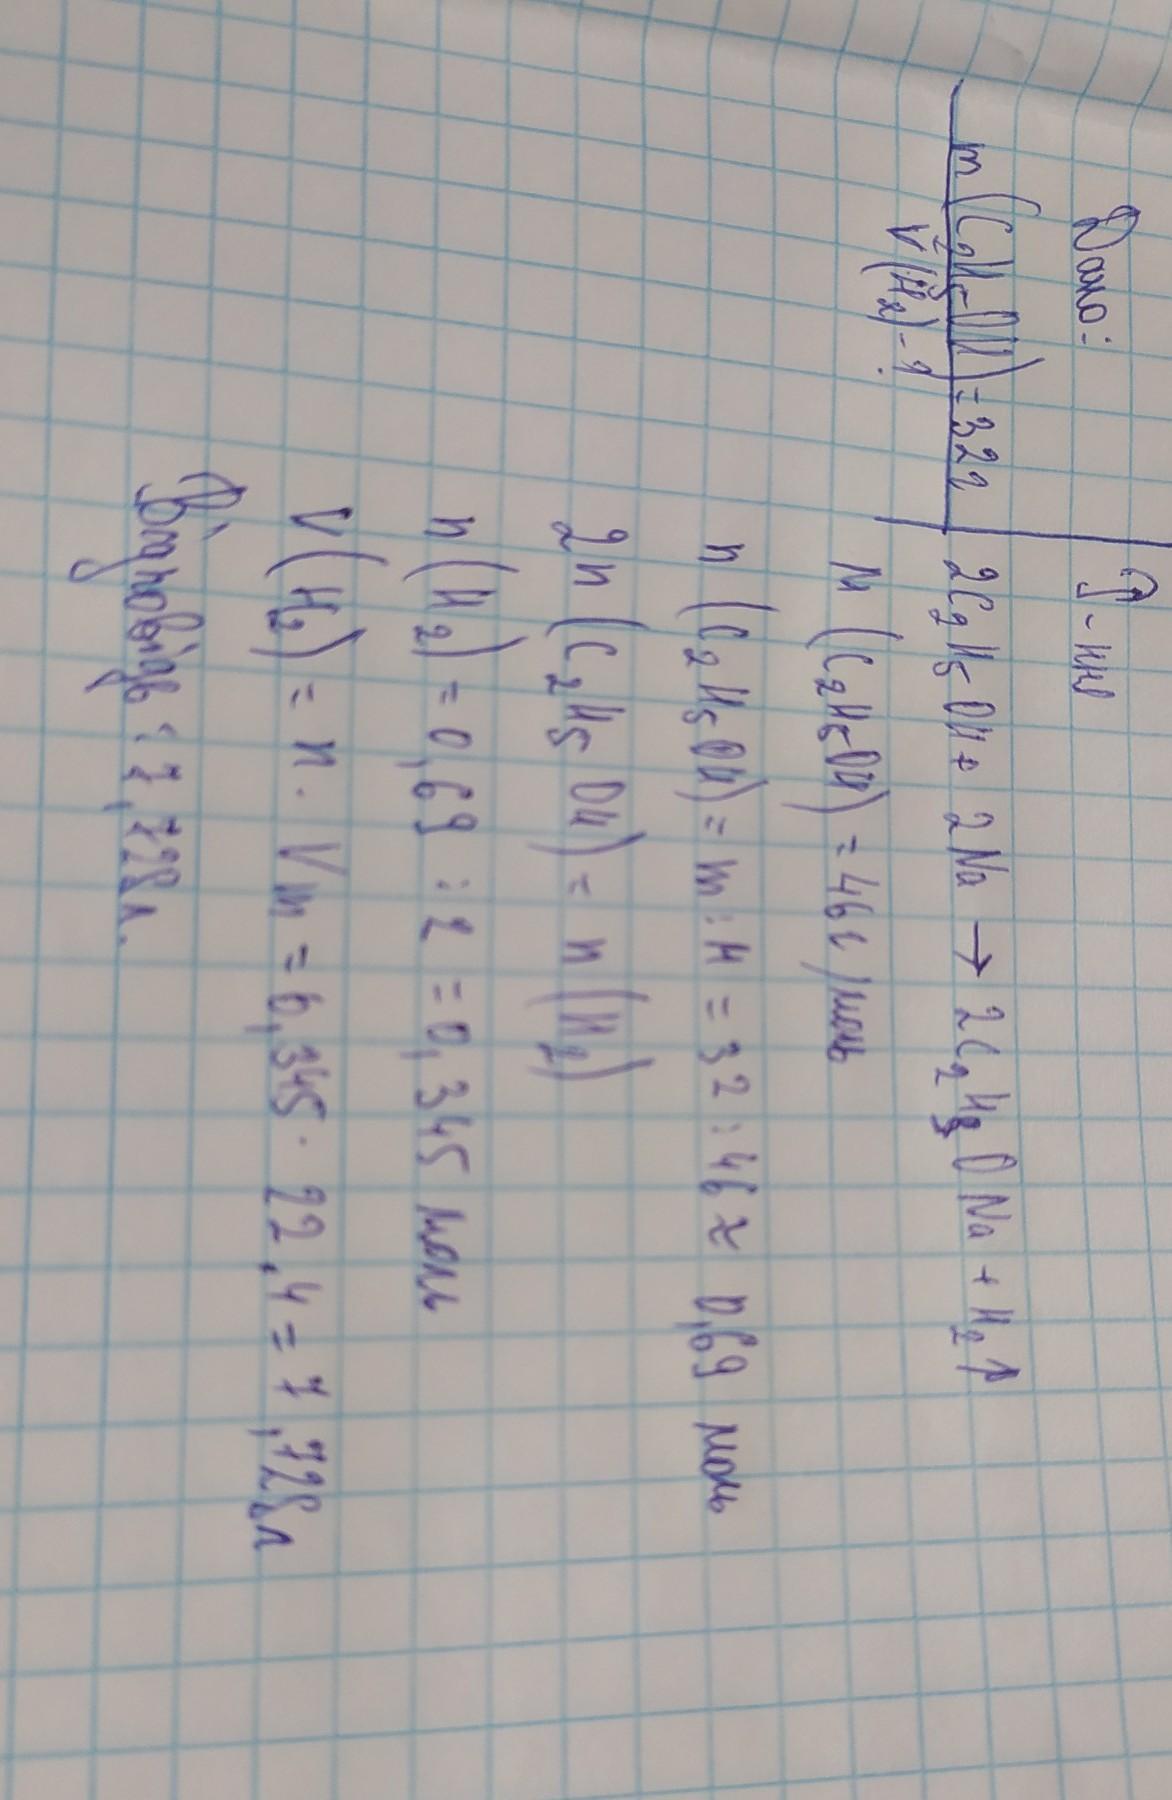 Дано:
m(C₂H₅OH)=32г
V(H₂)-?
2C₂H₅OH + 2Na → 2C₂H₅ONa + H₂↑
M(C₂H₅OH) = 46г/моль
n(C₂H₅OH) = m:M = 32:46 ≈ 0,69 моль
2n(C₂H₅OH) = n(H₂)
n(H₂) = 0,69 : 2 = 0,345 моль
V(H₂) = n · Vm = 0,345 · 22,4 = 7,728л
Відповідь: 7,728л.